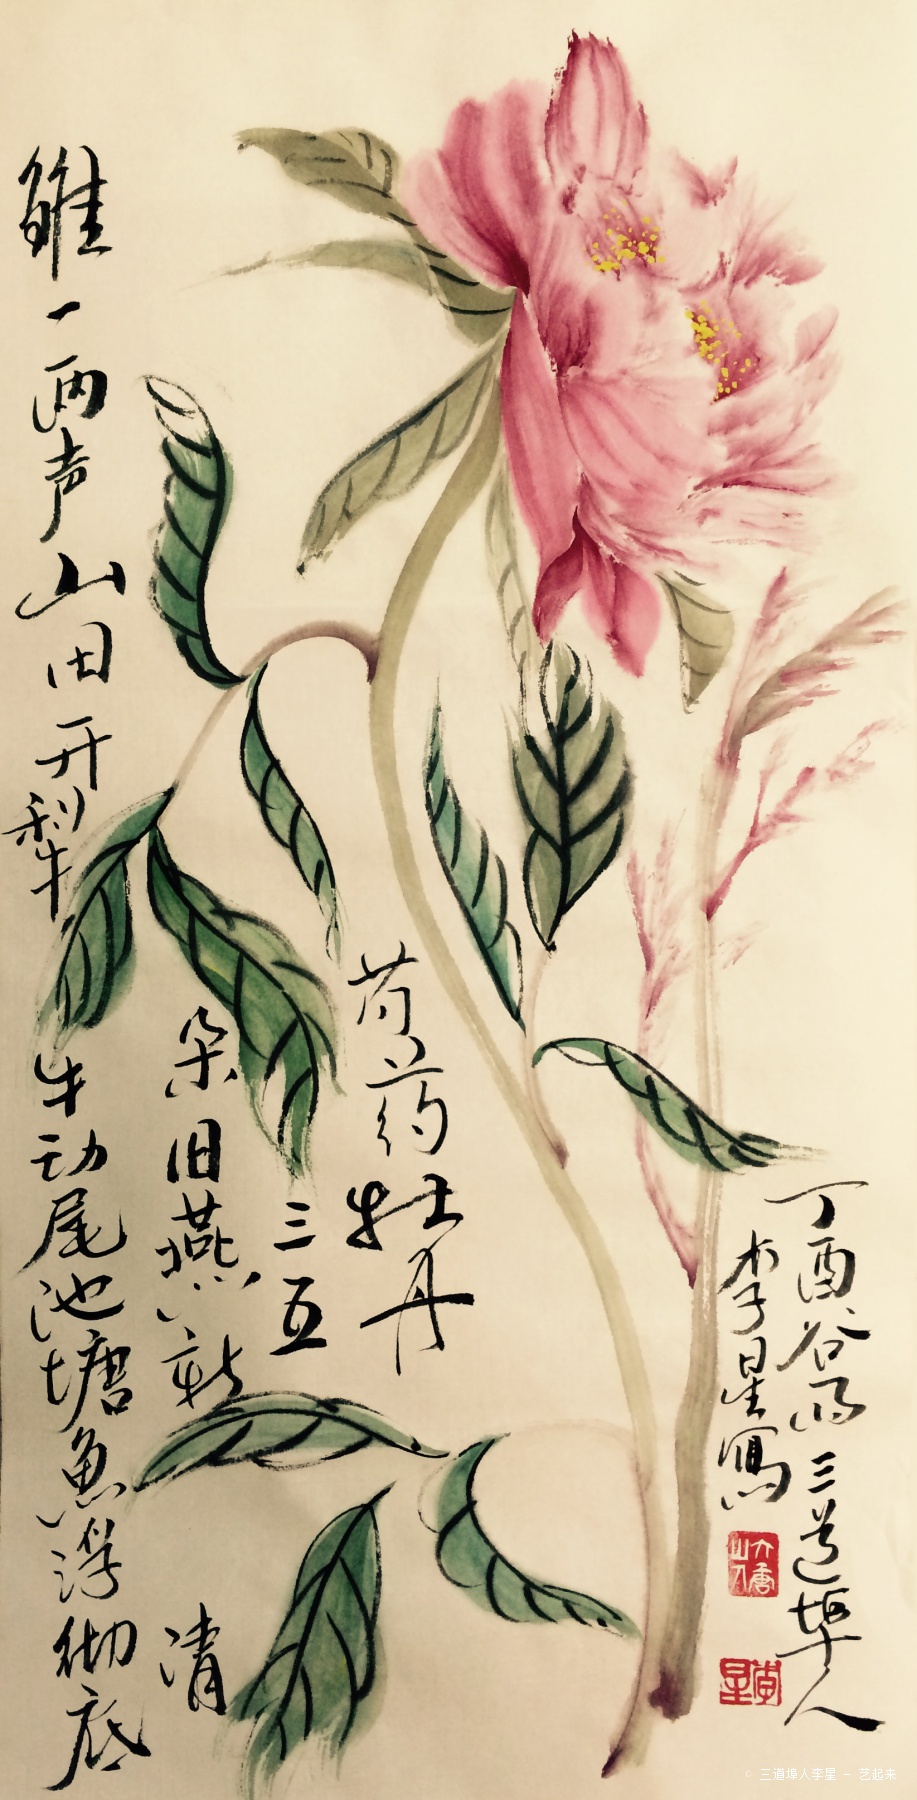 芍药牡丹
三五
朵旧燕新
雏一两声山田开犁牛动尾池塘鱼浮彻底
清
丁酉谷雨三道埠人
李星寫
李星
© 三道埠人李星 － 艺起来